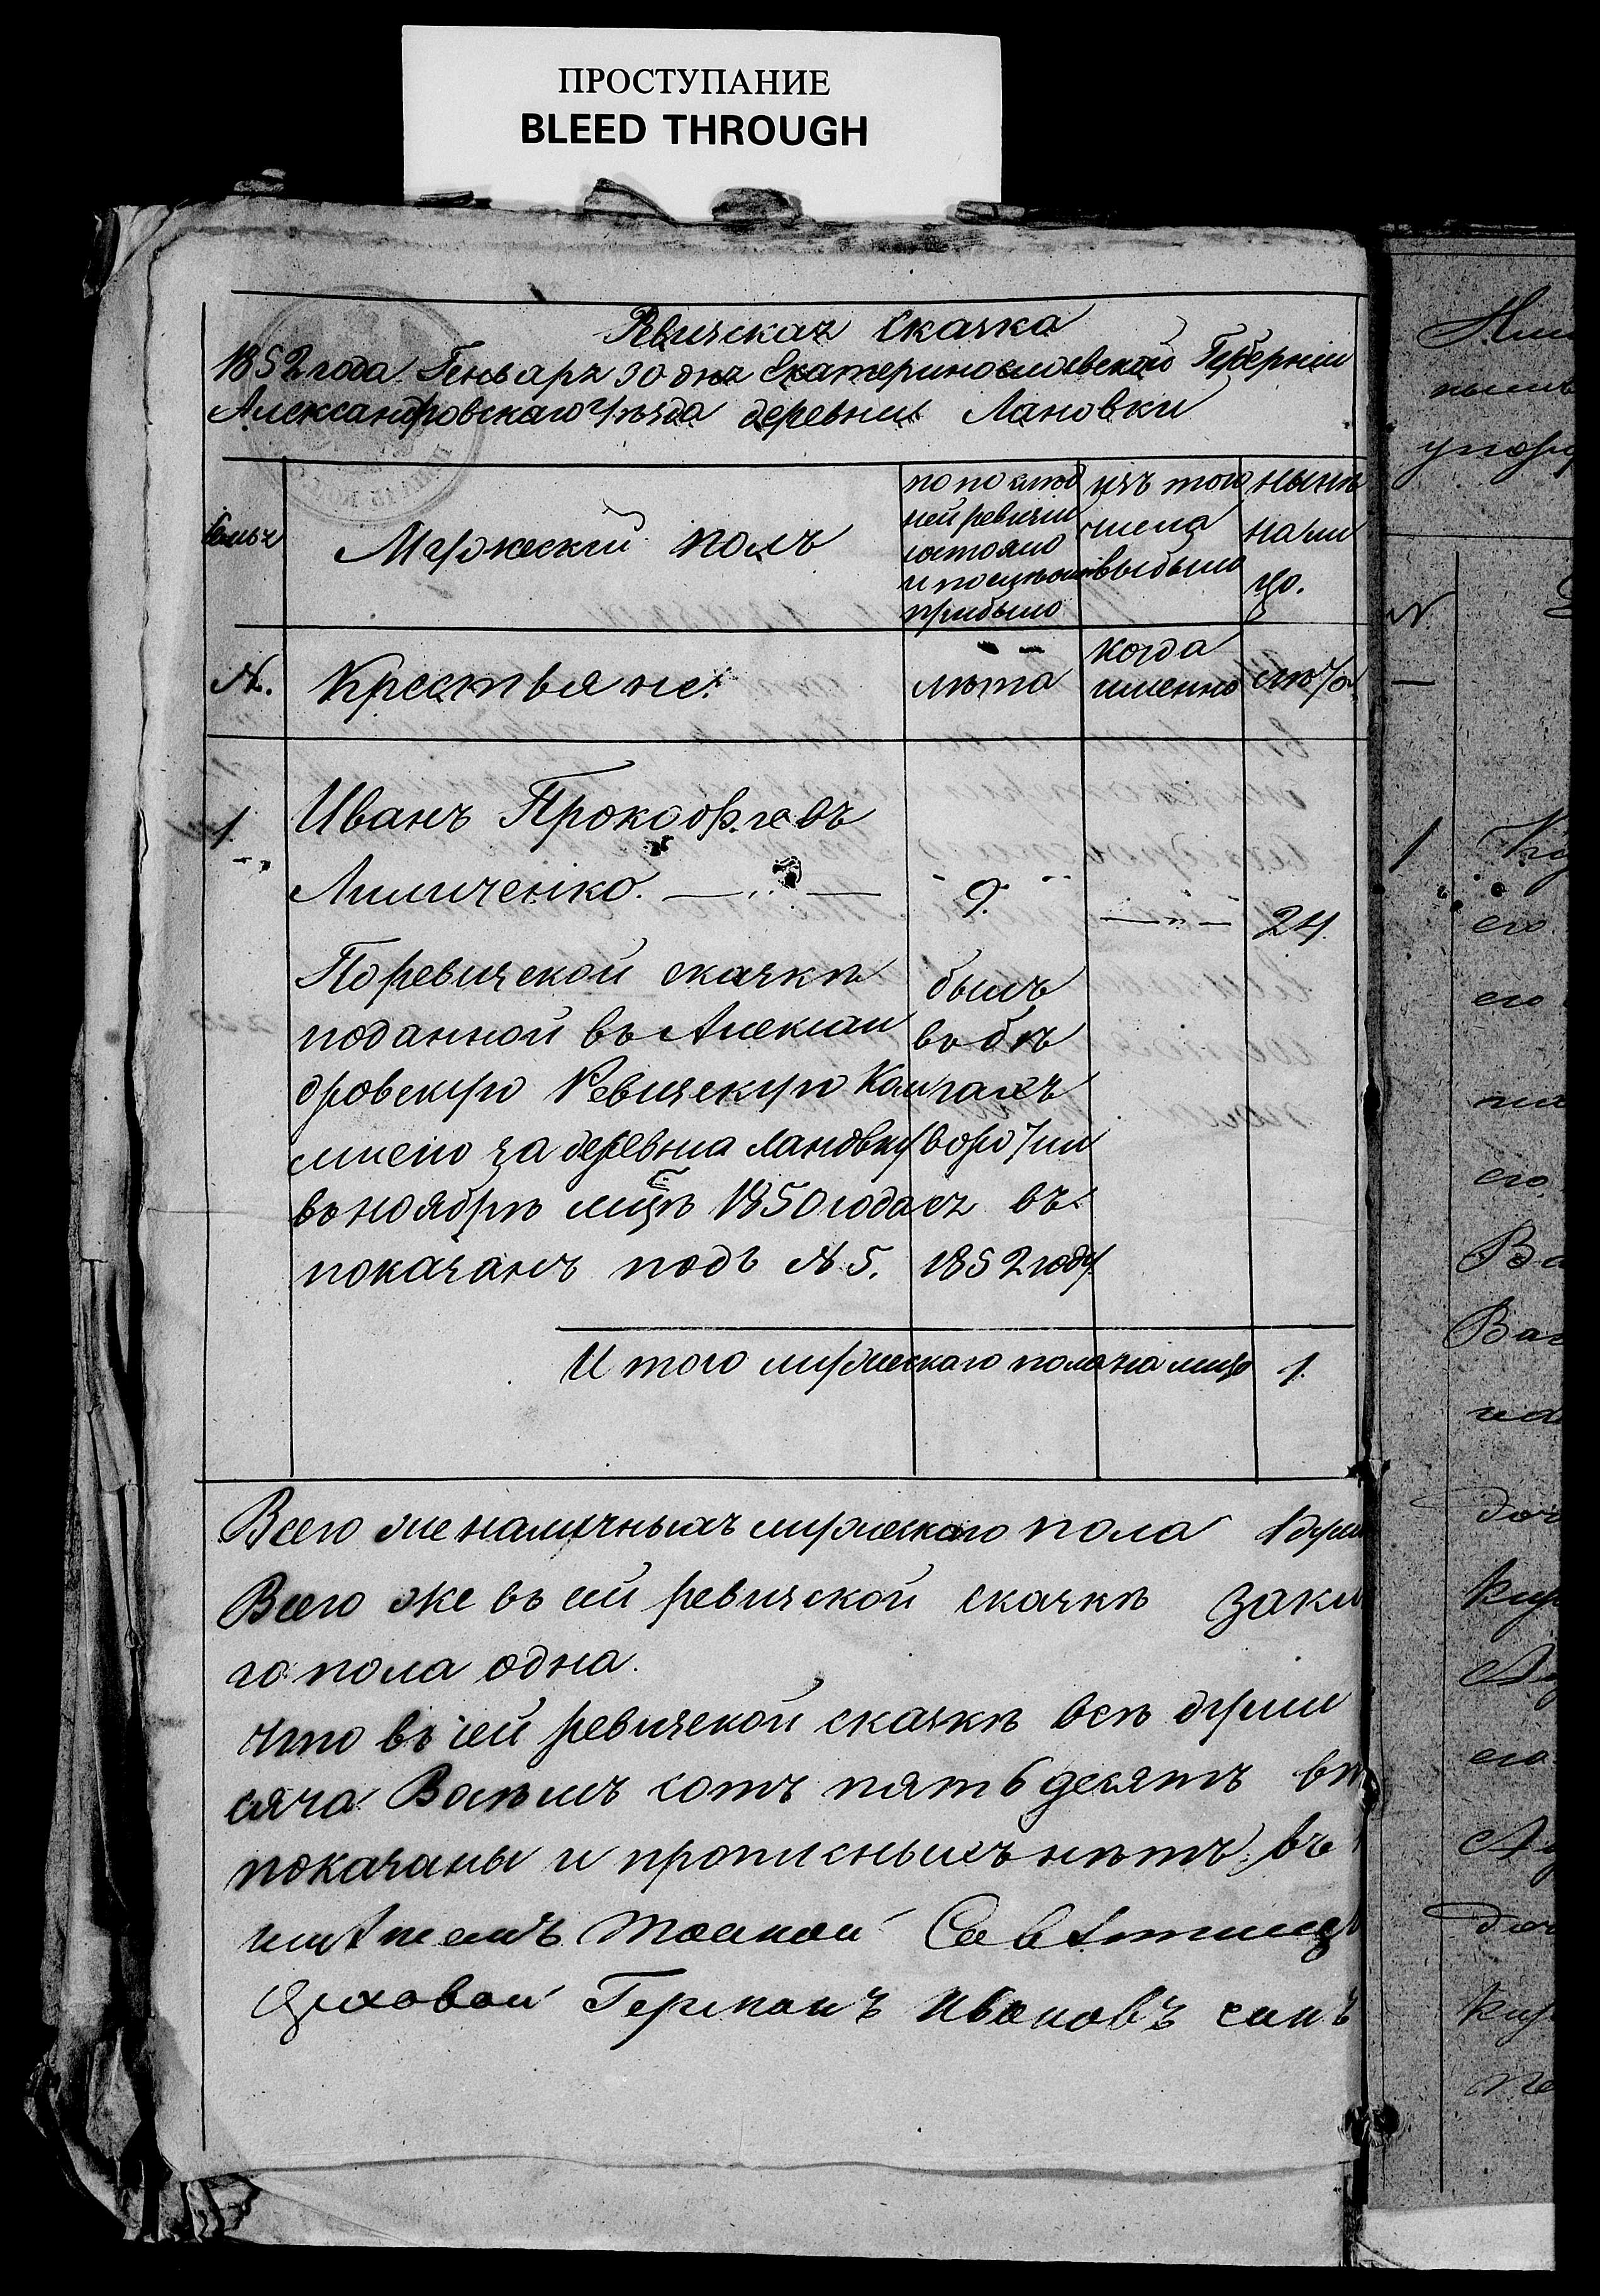 ПРОСТУПАНИЕ
BLEED THROUGH
Ревизская Сказка
1852 года Генваря 30 дня Екатеринославской Губерніи
Александровскаго Уѣзда деревни Лановки
Семья
Мужескій полъ
по послѣд
ней ревизіи
состояло
и после
прибыло
изъ того
числа
выбыло
нынѣ
на ли
цо.
№.
Крестьяне:
лѣта
когда
именно
лѣта
1.
Иванъ Прокофьевъ
Лимиченко.
9.
24.
По ревизской сказкѣ
поданной въ Алексан
дровскую Ревизскую Ком
мисію за деревню Лановку
въ ноябрѣ мцѣ 1850 года
показанъ подъ № 5.
былъ
въ бѣ
гахъ
воротил
ся въ
1852 году
Итого мужескаго пола на лицо 1.
Всего же наличныхъ мужескаго пола 1 душ
Всего же въ сей ревизской сказкѣ заклю
го пола одна.
Что въ сей ревизской сказкѣ всѣ души
сяча Восемь сотъ пятьдесятъ вт
показаны и прописныхъ нѣтъ, въ
Цеховой Германъ Ивановъ сынъ
1
его
его
его
Ва
его